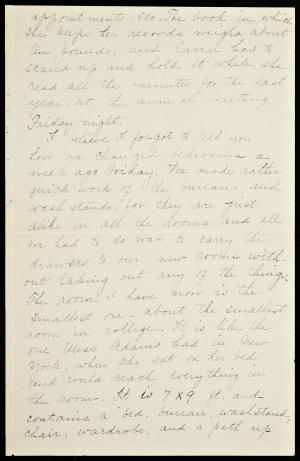 appointments. Etc. The book in which
she keeps her records weighs about
ten pounds, and Carrie had to
stand up and hold it while she
read all the minutes for the last
year, at the annual meeting
Friday night.
I believe I forgot to tell you
how we changed bedrooms a
week ago Friday. We made rather
quick work of the bureaus and
wash stands, for they are just
alike in all the rooms and all
we had to do was to carry the
drawers to our new rooms with-
out taking out any of the things.
The room I have now is the
smallest one - about the smallest
room in college. It is like the
one Miss Adams had in New
York, when she sat on her bed
and could reach everything in
the room. It is 7 X 9 ft. and
contains a bed, bureau, washstand,
chair, wardrobe, and a path up